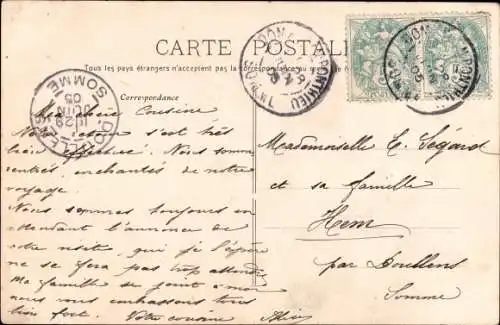 CARTE POSTALE
Tous les pays étrangers n'acceptent pas la correspondance au
Correspondance
Ma chère Cousine
Notre retour s'est très
bien effectué. Nous sommes
rentrés enchantés de notre
voyage.
Nous sommes toujours en
attendant l'annonce de
votre visite, qui je l'espère
ne se fera pas trop attendre
Ma famille se joint à moi
nous vous embrassons tous
bien fort. Votre cousine
Alice
Mademoiselle C. Ségard
et sa famille
Hem
par Doullens
Somme
DOULLENS
SOMME
29
JUIN
05
PONTHIEU
05